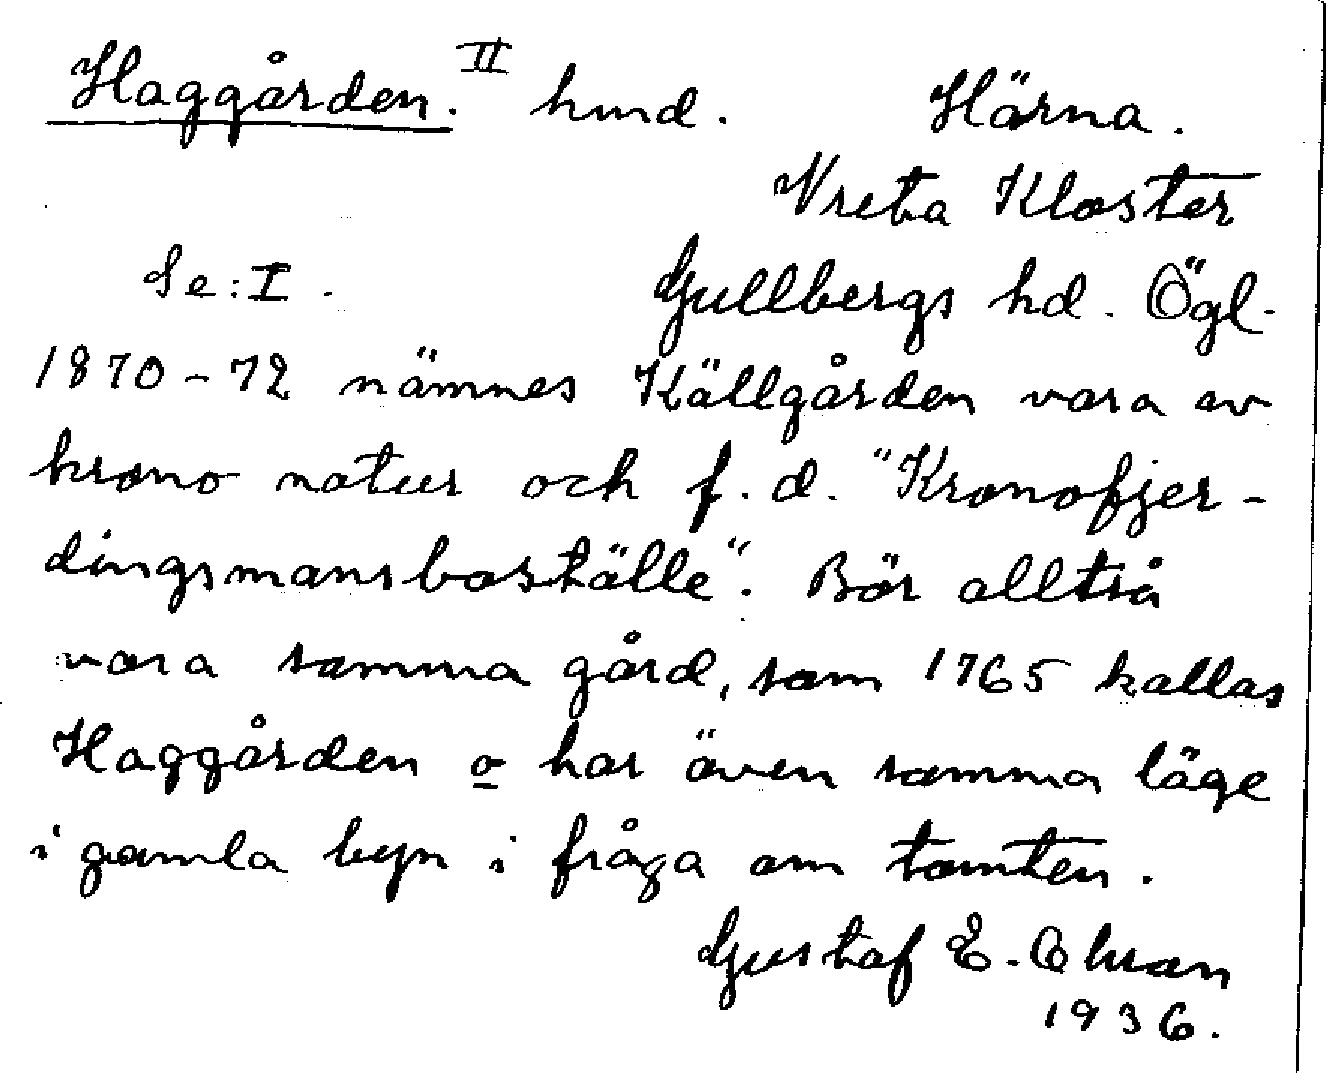 Haggården. II hmd. Härna.
Vreta Kloster
Se: I. Gullbergs hd. Ögl.
1870-72 nämnes Källgården vara av
krono natur och f.d. "Kronofjer-
dingsmansboställe". Bör alltså
vara samma gård, som 1765 kallas
Haggården o har även samma läge
i gamla byn i fråga om tomten.
Gustaf E.
1936.